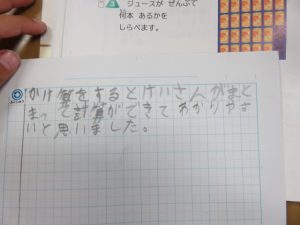 ジュースが ぜんぶで
何本 あるかを
しらべます。
かけ算をするとけいさんがまと
まって計算ができてわかりやす
いと思いました。